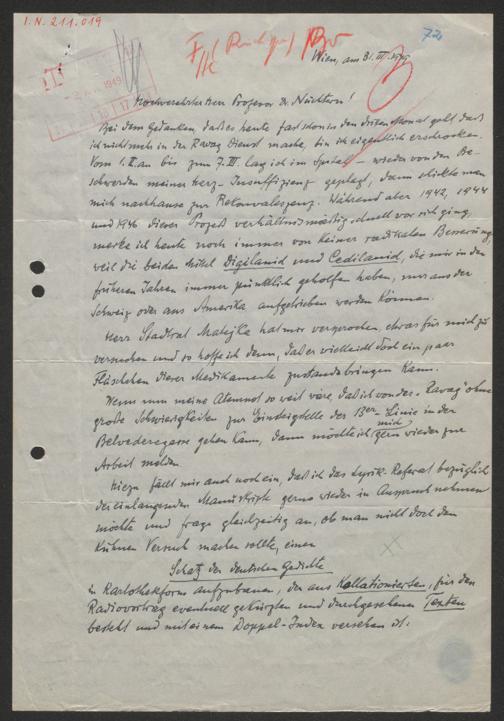 I.N. 211.019
72
Wien, am 31. III. 1949
Hochverehrter Herr Professor Dr. Nüchtern!
Bei dem Gedanken, daß es heute fast schon in den dritten Monat geht, daß
ich nicht mehr in der Ravag Dienst mache, bin ich eigentlich erschrocken.
Vom 1. II. an bis zum 7. III. lag ich im Spital – wieder von den Be-
schwerden meiner Herz-Insuffizienz geplagt, dann schickte man
mich nachhause zur Rekonvaleszenz. Während aber 1942, 1944
und 1946 dieser Prozeß verhältnismäßig schnell vor sich ging,
merke ich heute noch immer von keiner radikalen Besserung,
weil die beiden Mittel Digilanid und Cedilanid, die mir in den
früheren Jahren immer pünktlich geholfen haben, nur aus der
Schweiz oder aus Amerika aufgetrieben werden können.
Herr Stadtrat Matejka hat mir versprochen, etwas für mich zu
versuchen und so hoffe ich denn, daß er vielleicht doch ein paar
Fläschchen dieser Medikamente zustandebringen kann.
Wenn nun meine Atemnot so weit wäre, daß ich von der „Ravag" ohne
große Schwierigkeiten zur Einsteigstelle der 13er-Linie in der
Belvederegasse gehen kann, dann möchte ich mich gern wieder zur
Arbeit melden.
Hiezu fällt mir auch noch ein, daß ich das Lyrik-Referat bezüglich
der einlangenden Manuskripte gerne wieder in Anspruch nehmen
möchte und frage gleichzeitig an, ob man nicht doch den
kühnen Versuch machen sollte, einen
Schatz der deutschen Gedichte
in Kartothekform aufzubauen, der aus kollationierten, für den
Radiovortrag eventuell gekürzten und durchgesehenen Texten
besteht und mit einem Doppel-Index versehen ist.